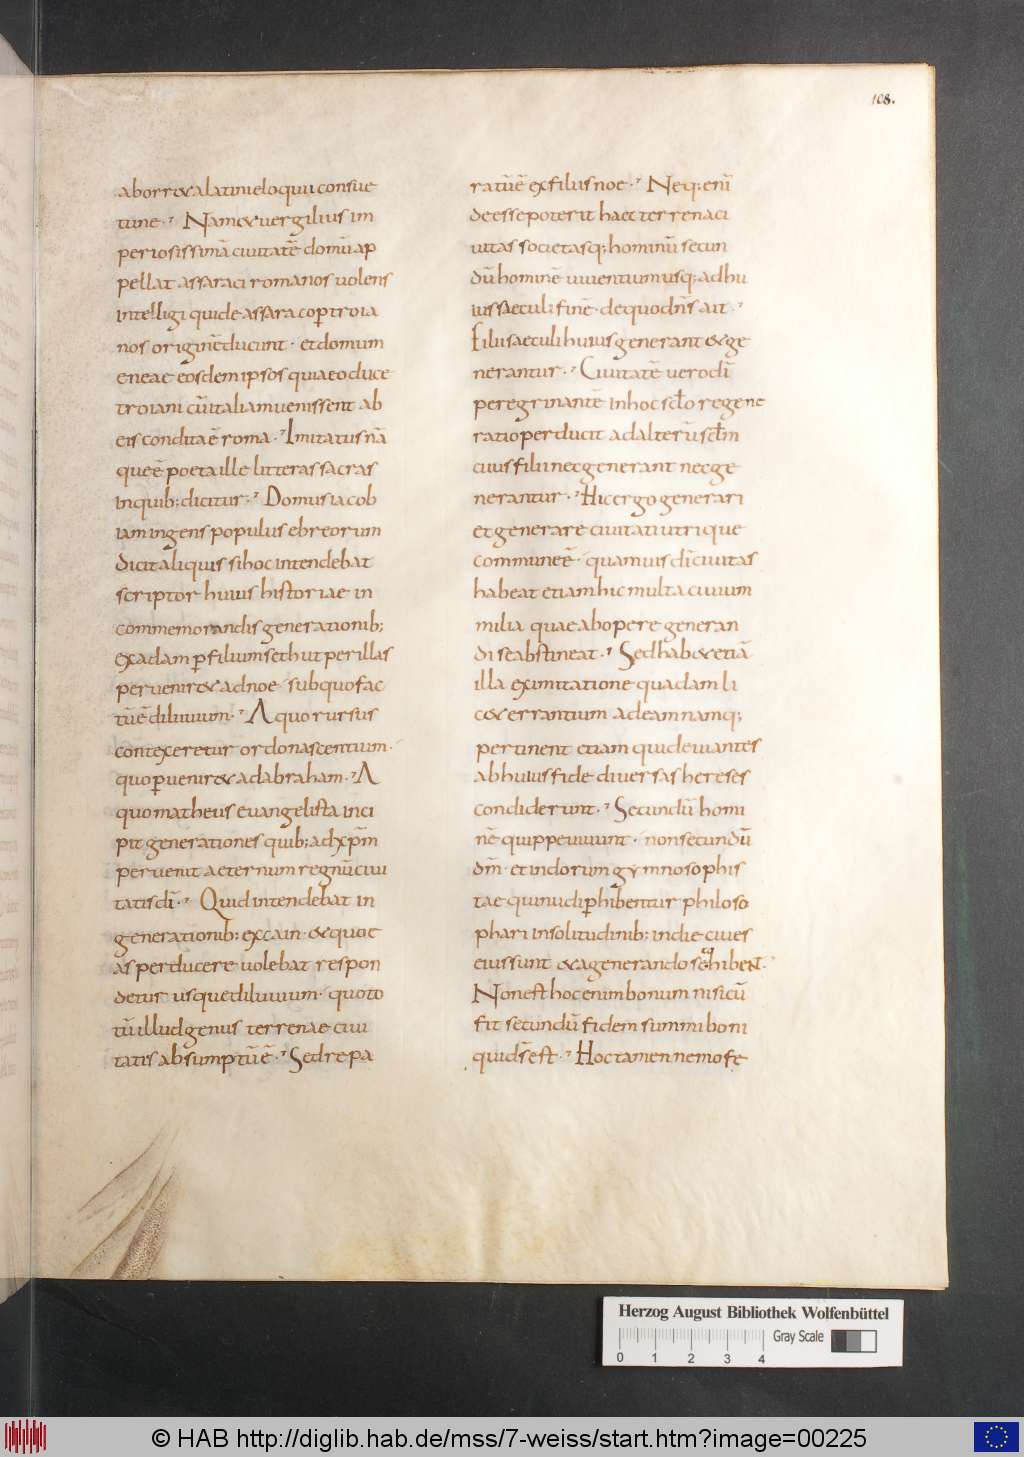 108.
aborr&alatinieloquii consue
tine · Nam&uergilius im
periosissimā ciuitatē domū ap
pellat assaraci romanos uolens
intelligi quide assaraco ꝑ troia
nos originē ducunt · et domum
eneae eosdem ipsos quia eo duce
troiani cū italiam uenissent ab
eis condita ē roma · Imitatus nā
que ē poeta ille litteras sacras
in quib; dicitur · Domus iacob
iam ingens populus ebreorum
dicit aliquis si hoc intendebat
scriptor huius historiae in
commemorandis generationib;
ex adam ꝑ filium seth ut per illas
perueniret ad noe · sub quo fac
tū ē diluuium · A quo rursus
contexeretur ordo nascentium ·
quo ꝑuenir& ad abraham · A
quo matheus euangelista inci
pit generationes quib; ad xp̄m
peruenit aeternum regnū ciui
tatis dī · Quid intendebat in
generationib; ex cain · & quo e
as perducere uolebat respon
detur usque diluuium · quo to
tū illud genus terrenae ciui
tatis absumptū ē · Sed repa
ratū ē ex filiis noe · Neq; enī
deesse poterit haec terrena ci
uitas societasq; hominū secun
dū hominē uiuentium usq; ad hu
ius saeculi finē · de quo dn̄s ait ·
Filii saeculi huius generant & ge
nerantur · Ciuitatē uero dī
peregrinantē in hoc scl̄o regene
ratio perducit ad alterū scl̄m
cuius filii nec generant nec ge
nerantur · Hic ergo generari
et generare ciuitati utrique
commune ē · quamuis dī ciuitas
habeat etiam hic multa ciuium
milia quae ab opere generan
di se abstineat · Sed hab& etiā
illa ex imitatione quadam li
c& errantium ad eam namq;
pertinent etiam qui deuiantes
ab huius fide diuersas hereses
condiderunt · Secundū homi
nē quippe uiuunt · non secundū
dm̄ · et indorum gymnosophis
tae qui nudi ꝑhibentur philoso
phari in solitudinib; indie ciues
eius sunt & a generando se cohibent ·
Non est hoc enim bonum nisi cū
fit secundū fidem summi boni
qui ds̄ est · Hoc tamen nemo fe
Herzog August Bibliothek Wolfenbüttel
0 1 2 3 4 Gray Scale
© HAB http://diglib.hab.de/mss/7-weiss/start.htm?image=00225